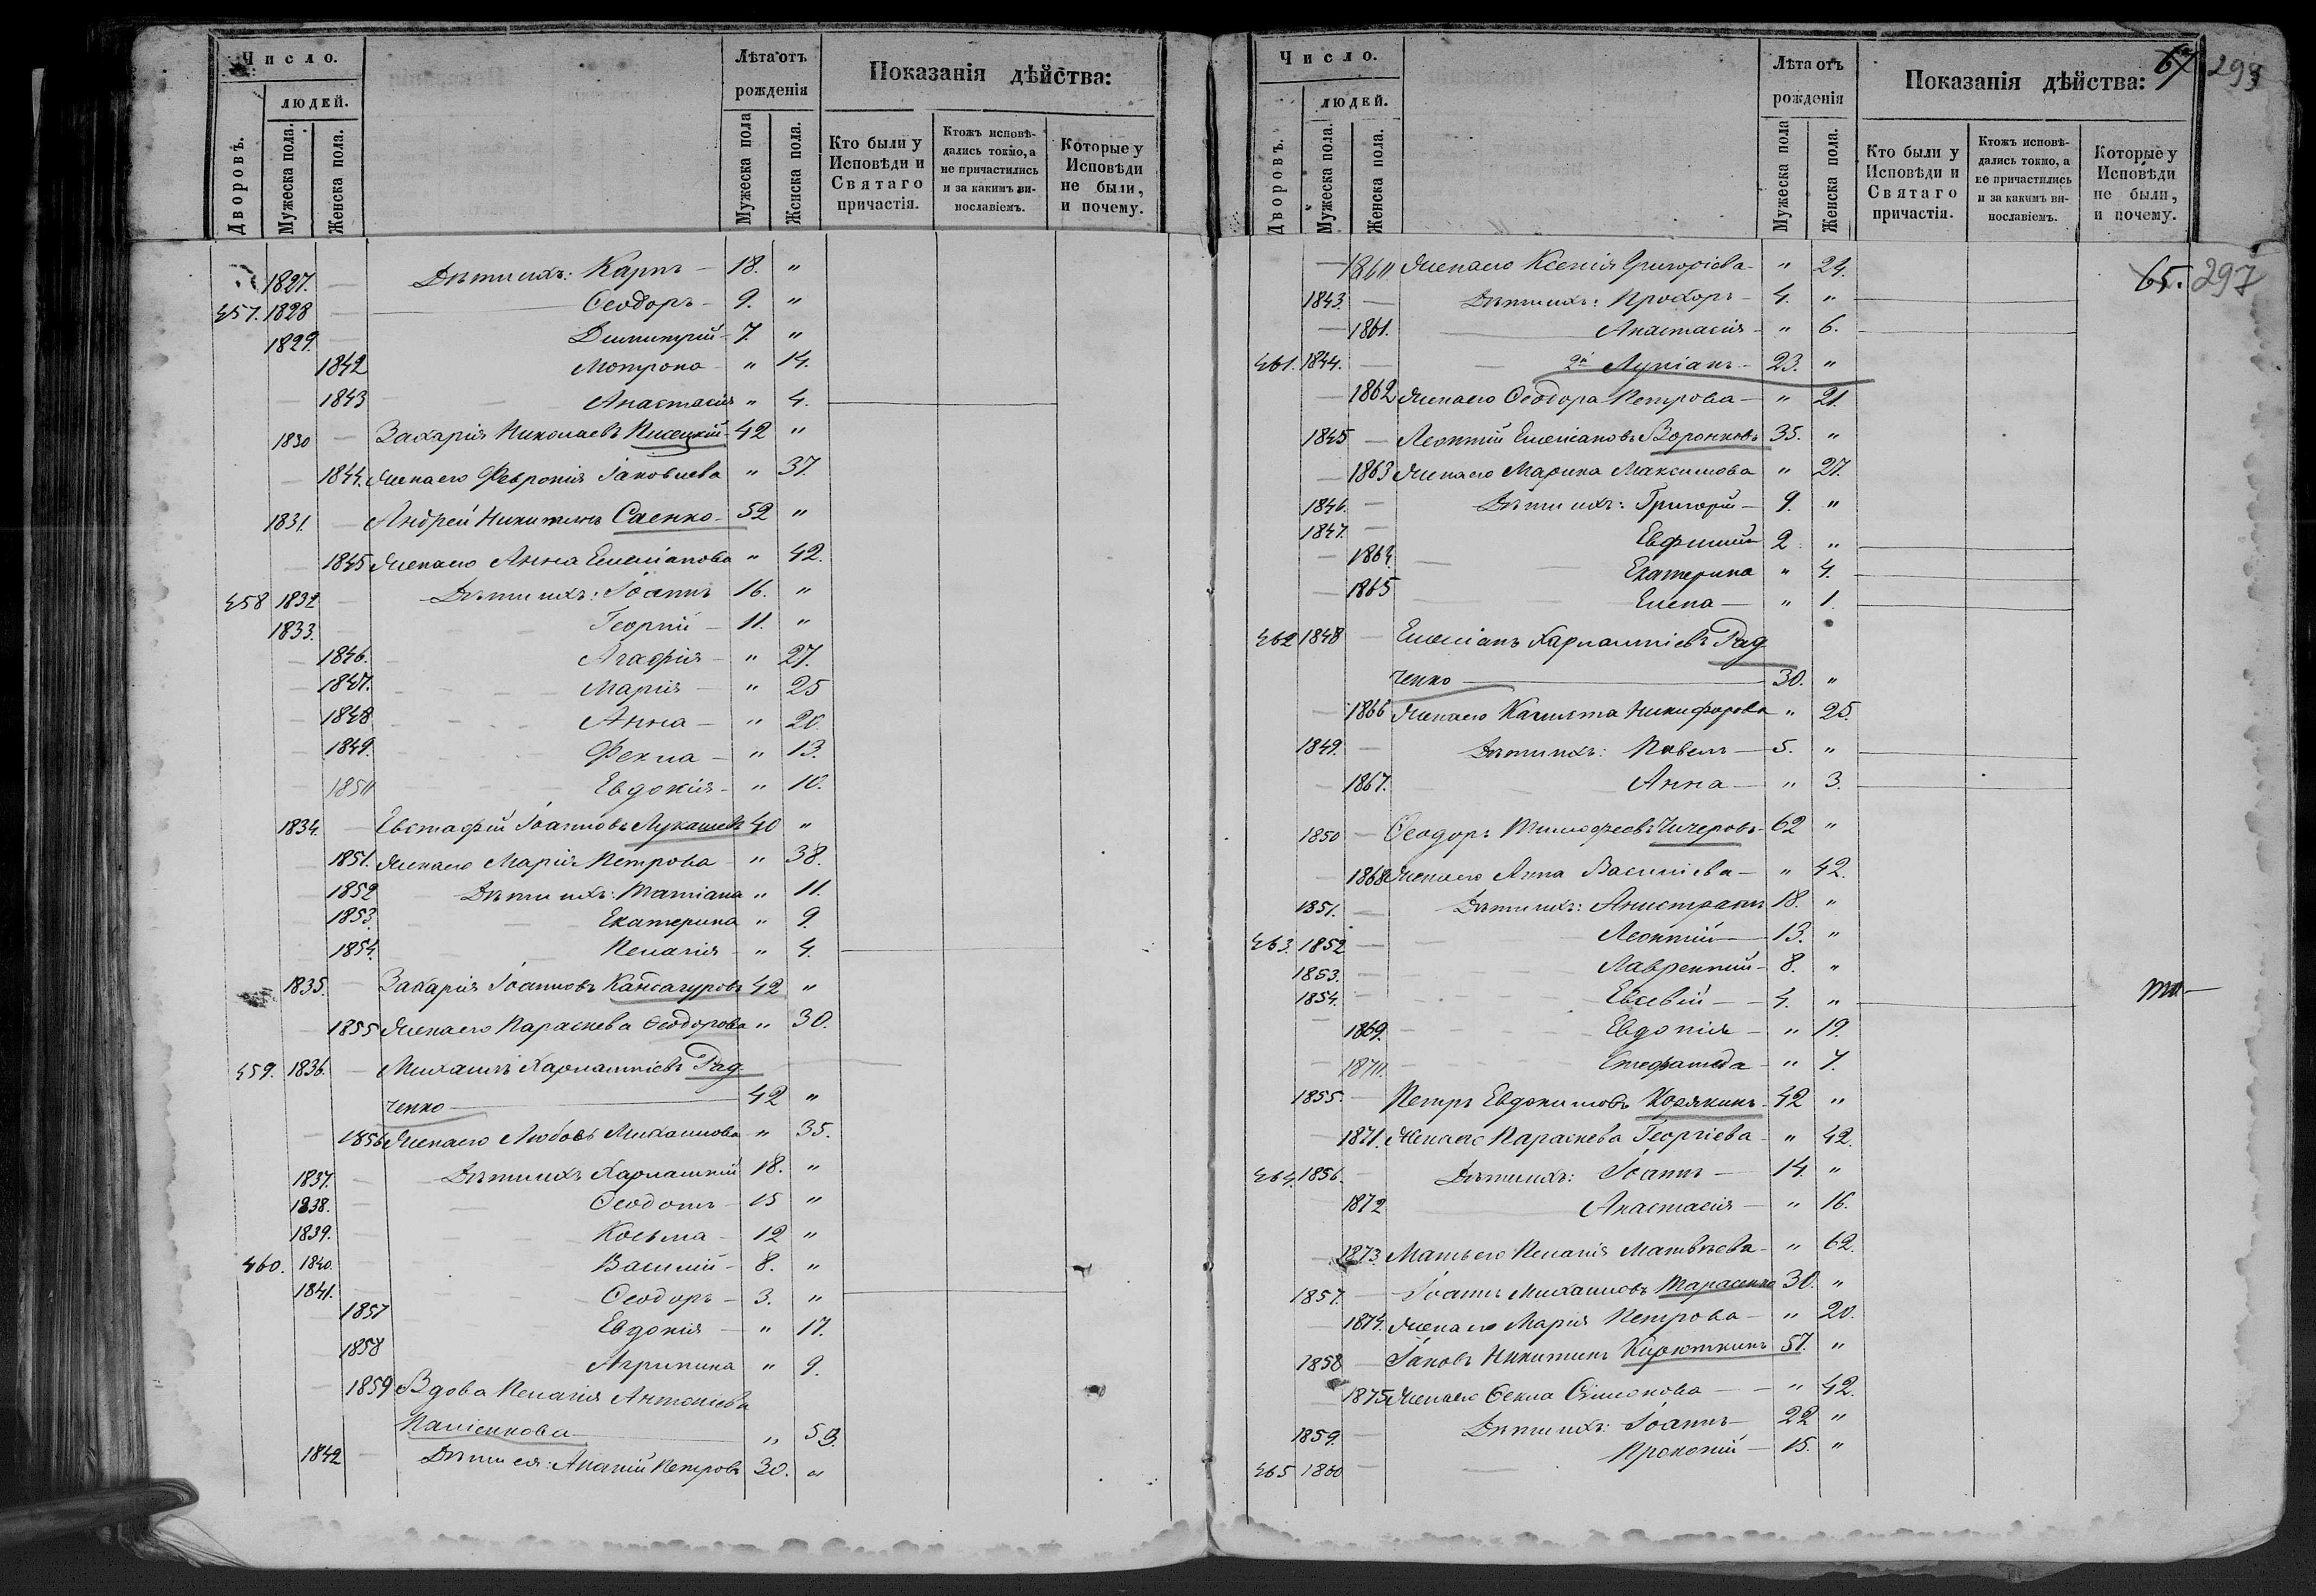 Число.
людей.
Дворовъ.
Мужеска пола.
Женска пола.
Лѣта отъ рожденія
Мужеска пола
Женска пола.
Показанія дѣйства:
Кто были у Исповѣди и Святаго причастія.
Ктожъ исповѣдались токмо, а не причастились и за какимъ винословіемъ.
Которые у Исповѣди не были, и почему.
1827. Дѣти ихъ: Карпъ 18. "
457. 1828 Ѳеодоръ 9. "
1829. Димитрій 7. "
1842 Мотрона " 14.
1843 Анастасія " 4.
1830 Захарія Николаевъ 42 "
1844. Жена его Февронія Іаковлева " 37.
1831. Андрей Никитинъ Саенко 52 "
1845 Жена его Анна Емеліанова " 42.
458 1832 Дѣти ихъ: Іоаннъ 16. "
1833. Георгій 11. "
1846. Агафія " 27.
1847. Марія " 25
1848 Анна " 20.
1849. Фекла " 13.
1850 Евдокія " 10.
1834. Евстафій Іоанновъ Лукашевъ 40 "
1851. Жена его Марія Петрова " 38.
1852 Дѣти ихъ: Татіана " 11.
1853. Екатерина " 9.
1854. Пелагія " 4.
1835. Захарія Іоанновъ 42 "
1855 Жена его Параскева Ѳеодорова " 30.
459. 1836. Михаилъ Харлампіевъ Рад
ченко 42 "
1856 Жена его Любовь Михаилова " 35.
1837. Дѣти ихъ Харлампій 18. "
1838. Ѳеодотъ 15 "
1839. Косьма 12 "
460. 1840. Василій 8. "
1841. Ѳеодоръ 3. "
1857 Евдокія " 17.
1858 Агрипина " 9.
1859 Вдова Пелагія Антоніева
Паліенкова " 53.
1842 Дѣти ея: Ананій Петровъ 30. "
Число.
людей.
Дворовъ.
Мужеска пола.
Женска пола.
Лѣта отъ рожденія
Мужеска пола
Женска пола.
Показанія дѣйства:
67 299
Кто были у Исповѣди и Святаго причастія.
Ктожъ исповѣдались токмо, а не причастились и за какимъ винословіемъ.
Которые у Исповѣди не были, и почему.
65. 297
1860 Жена его Ксенія Григоріева " 24.
1843. Дѣти ихъ: Прохоръ 4. "
1861. Анастасія " 6.
461. 1844. 2й Лукіанъ 23. "
1862 Жена его Ѳеодора Петрова " 21.
1845 Леонтій Емеліановъ Воронковъ 35. "
1863 Жена его Марина Максимова " 27.
1846. Дѣти ихъ: Григорій 9. "
1847. Евфимій 2 "
1864. Екатерина " 4.
1865 Елена " 1.
462 1848 Емеліанъ Харлампіевъ Рад
ченко 30. "
1866 Жена его Никифорова " 25.
1849. Дѣти ихъ: Павелъ 5. "
1867. Анна " 3.
1850 Ѳеодоръ Тимофеевъ Чичеровъ 62 "
1868 Жена его Анна Василіева " 42.
1851. Дѣти ихъ: 18. "
463. 1852 Леонтій 13. "
1853. Лаврентій 8. "
1854. Евсевій 4. "
1869. Евдокія " 19.
1870. " 7.
1855. Петръ Евдокимовъ Корякинъ 42 "
1871. Жена его Параскева Георгіева " 42.
464. 1856. Дѣти ихъ: Іоаннъ 14. "
1872 Анастасія " 16.
1873. Мать его Пелагія Матвѣева " 62.
1857. Іоаннъ Михаиловъ Тарасенко 30. "
1874. Жена его Марія Петрова " 20.
1858 Іаковъ Никитинъ Кирюткинъ 57. "
1875 Жена его Ѳекла Симонова " 42.
1859. Дѣти ихъ: Іоаннъ 22 "
465 1860 Прокопій 15. "